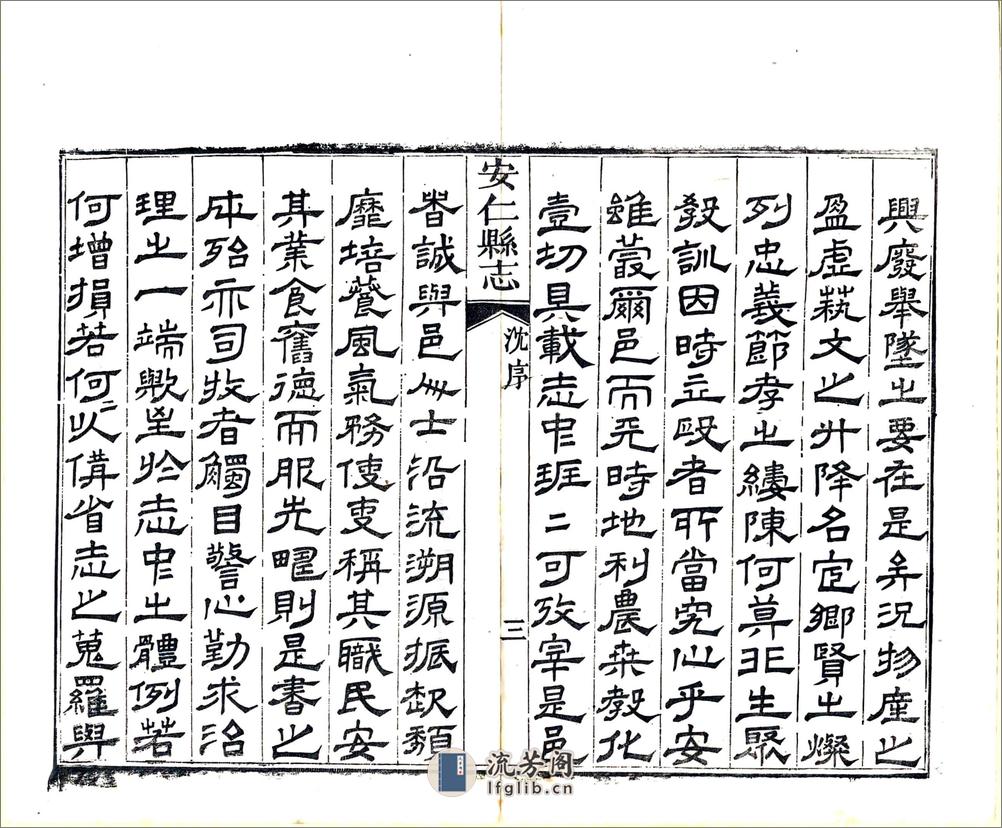 興廢舉墜之要在是矣況物產之
盈虛蓺文之升降名宦鄉賢之燦
列忠義節孝之縷陳何莫非生聚
教訓因時立政者所當究心乎安
雖蕞爾邑而天時地利農桒教化
壹切具載志中班二可攷宰是邑
安仁縣志
沈序
三
者誠與邑人士沿流溯源振敝頽
靡培養風氣務使吏稱其職民安
其業食舊德而服先疇則是書之
成殆亦司牧者觸目警心勤求治
理之一端歟至於志中之體例若
何增損若何以備省志之蒐羅與
流芳阁
lfglib.cn